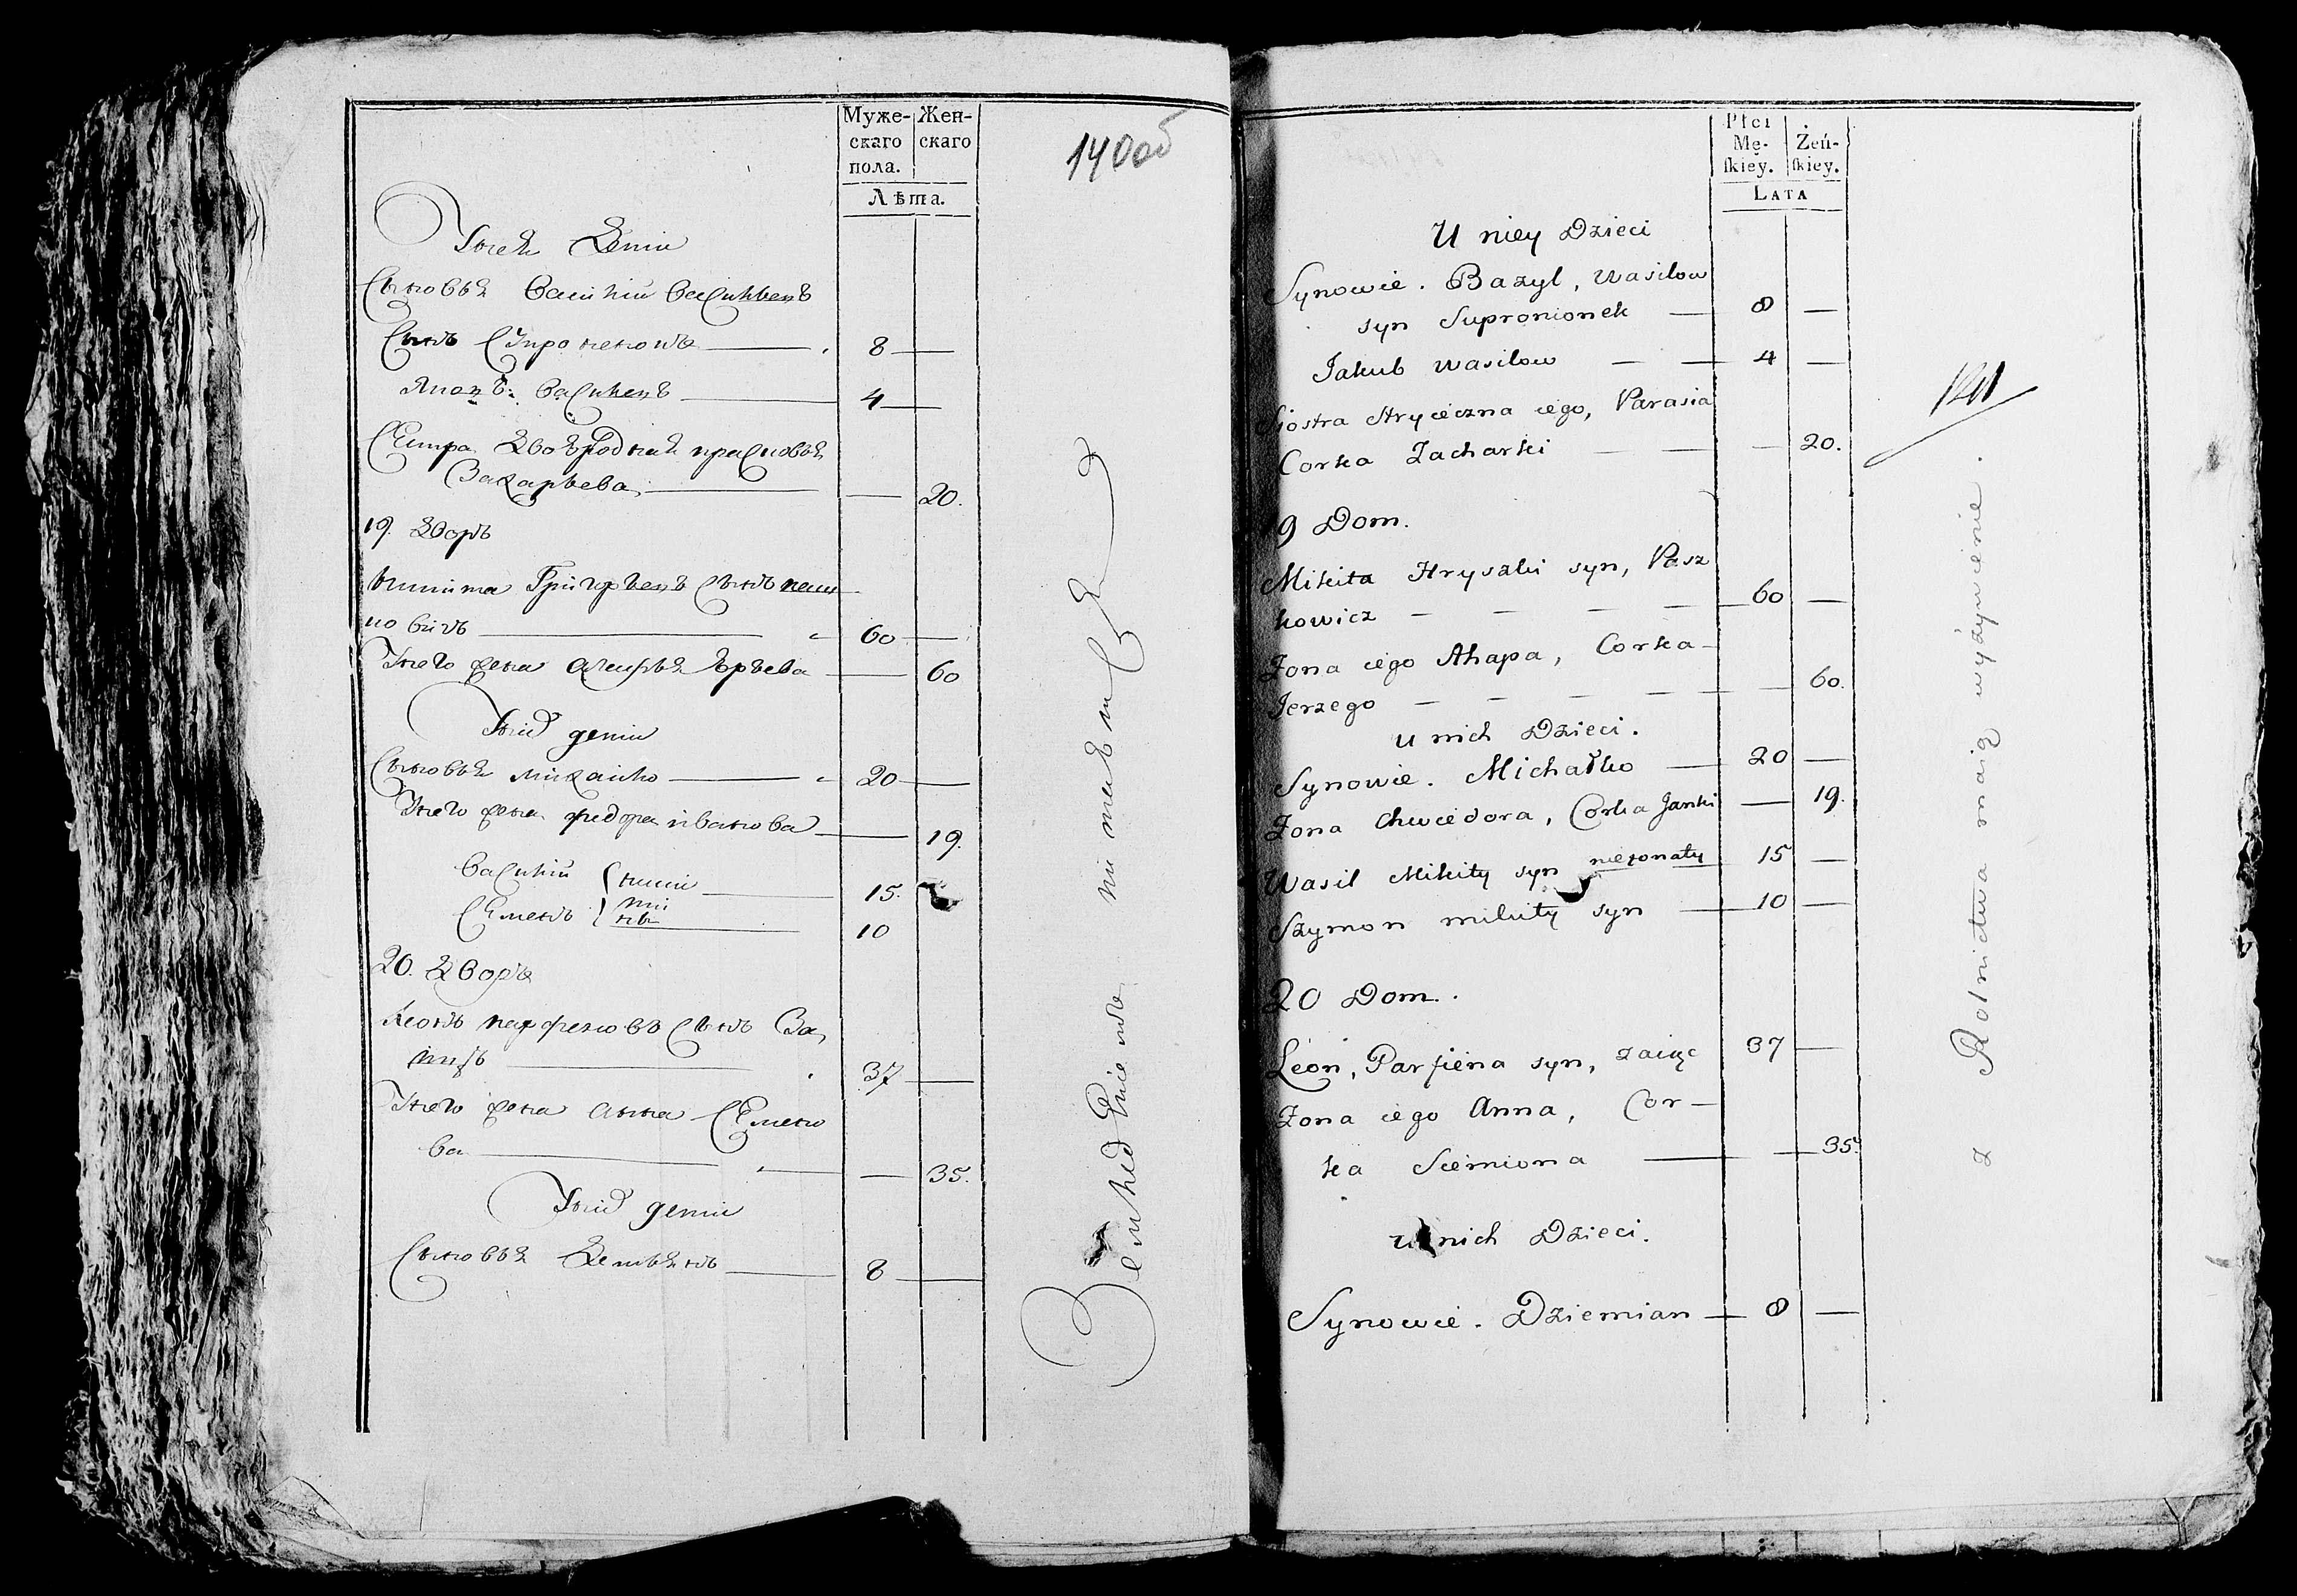 Муже-
скаго
пола.
Жен-
скаго
Лѣта.
140об
Унея Дети
Сыновья Василий Васильевъ
Сынъ Супроненокъ 8 —
Яковъ Васильевъ 4 —
Сестра Двоюродная Прасковья
Захарьева — 20.
19. Дворъ
Никита Григорьевъ Сынъ Паш
ковичъ 60 —
Унего жена Агафья Юрьева — 60
Уних дети
Сыновья Михайло 20 —
Унего жена Федора Иванова — 19.
Василий Ники 15.
Семенъ 10
20. Дворъ
Леонъ Парфеновъ Сынъ За
яцъ 37 —
Унего жена Анна Семено
ва — 35.
Уних дети
Сыновья Демьянъ 8 —
Płci
Mę-
ſkiey.
Żeń-
ſkiey.
LATA
U niey Dzieci
Synowie. Bazyl, Wasilow
syn Supronionek — 8 —
Jakub Wasilow — — 4 —
Siostra Stryieczna iego, Parasia
Corka Zacharki — — — 20.
19 Dom.
Mikita Hryszki syn, Pasz
kowicz — — — — 60 —
Zona iego Ahapa, Corka
Jerzego — — — — — 60.
u nich Dzieci.
Synowie. Michałko — 20 —
Zona Chwiedora, Corka Janki — 19.
Wasil Mikity syn nieżonaty 15 —
Szymon mikity syn — 10 —
20 Dom.
Léon, Parfiena syn, zaiąc 37 —
Zona iego Anna, Cor-
ka Siemiona — — 35.
u nich Dzieci.
Synowie. Dziemian — 8 —
141
z Rolnictwa maią wyżywienie.